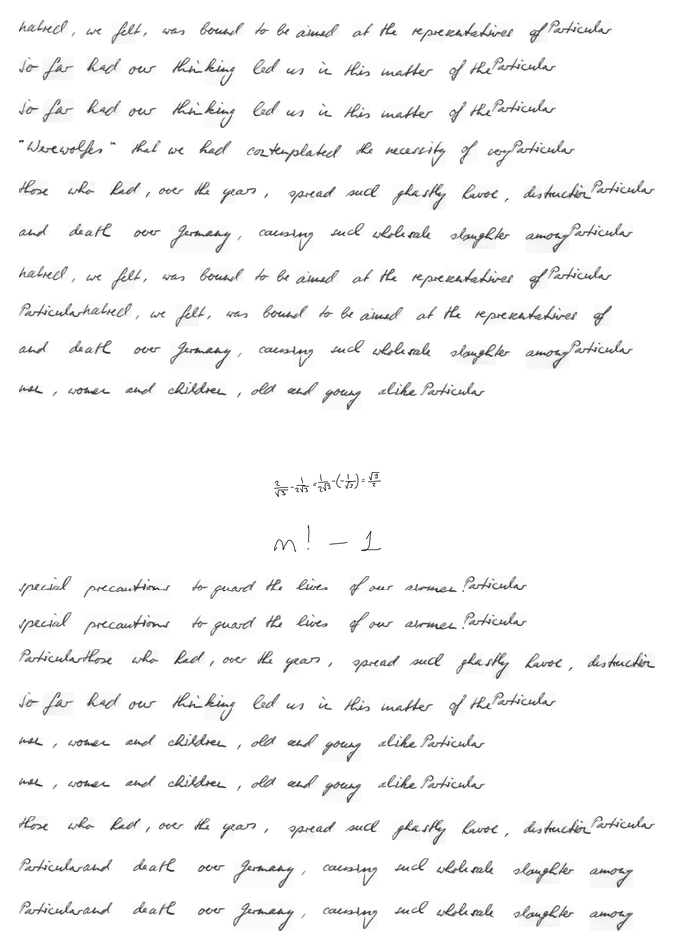 hatred, we felt, was bound to be aimed at the representatives of Particular
So far had our thinking led us in this matter of the Particular
So far had our thinking led us in this matter of the Particular
"Werewolfes" that we had contemplated the necessity of very Particular
those who had, over the years, spread such ghastly havoc, destruction Particular
and death over Germany, causing such wholesale slaughter among Particular
hatred, we felt, was bound to be aimed at the representatives of Particular
Particular hatred, we felt, was bound to be aimed at the representatives of
and death over Germany, causing such wholesale slaughter among Particular
men, women and children, old and young alike Particular
\frac{2}{\sqrt{3}} - \frac{1}{2\sqrt{3}} = \frac{1}{2\sqrt{3}} - (-\frac{1}{\sqrt{3}}) = \frac{\sqrt{3}}{2}
n! - 1
special precautions to guard the lives of our airmen. Particular
special precautions to guard the lives of our airmen. Particular
Particular those who had, over the years, spread such ghastly havoc, destruction
So far had our thinking led us in this matter of the Particular
men, women and children, old and young alike Particular
men, women and children, old and young alike Particular
those who had, over the years, spread such ghastly havoc, destruction Particular
Particular and death over Germany, causing such wholesale slaughter among
Particular and death over Germany, causing such wholesale slaughter among